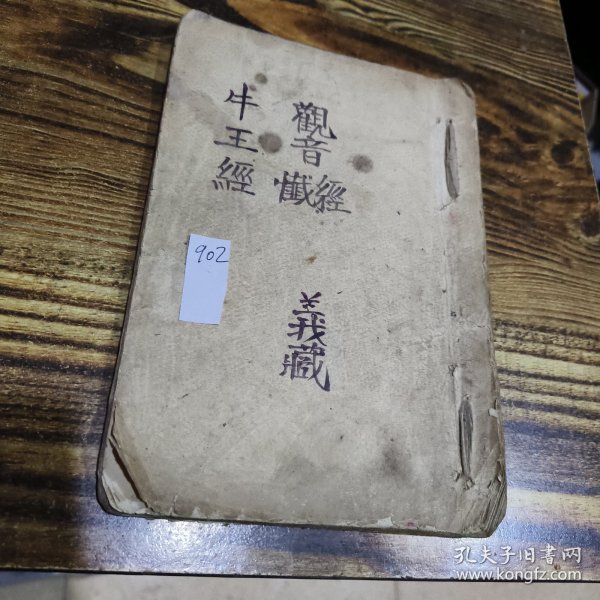 觀音經懺
牛王經
義藏
902
孔夫子旧书网
www.kongfz.com